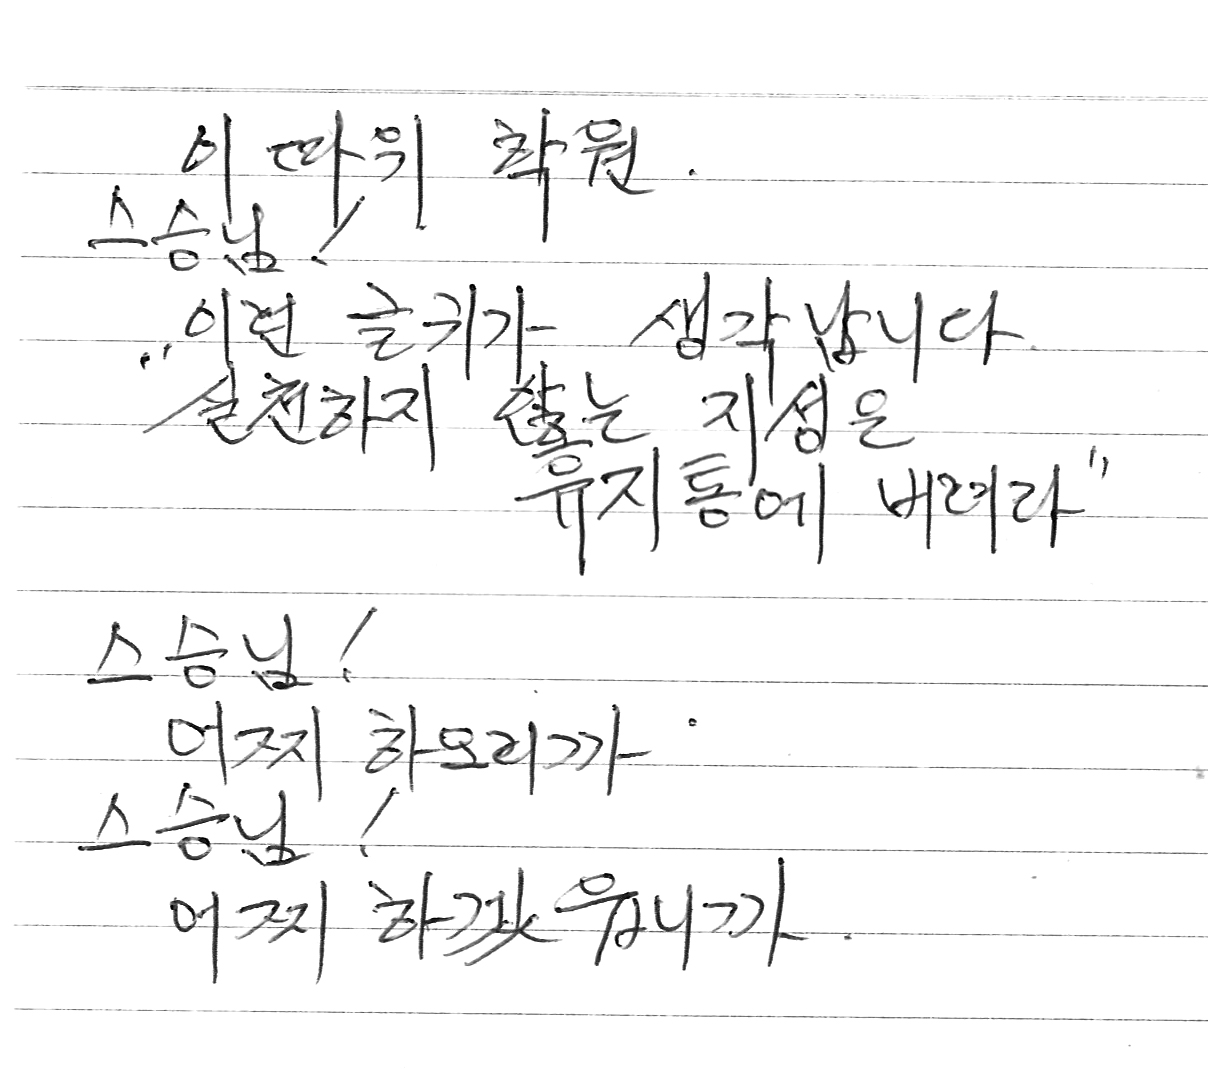 이따위 학원.
스승님!
이런 글귀가 생각납니다.
"실천하지 않는 지성은
휴지통에 버려라"
스승님!
어찌 하오리까
스승님!
어찌 하겠웁니까.